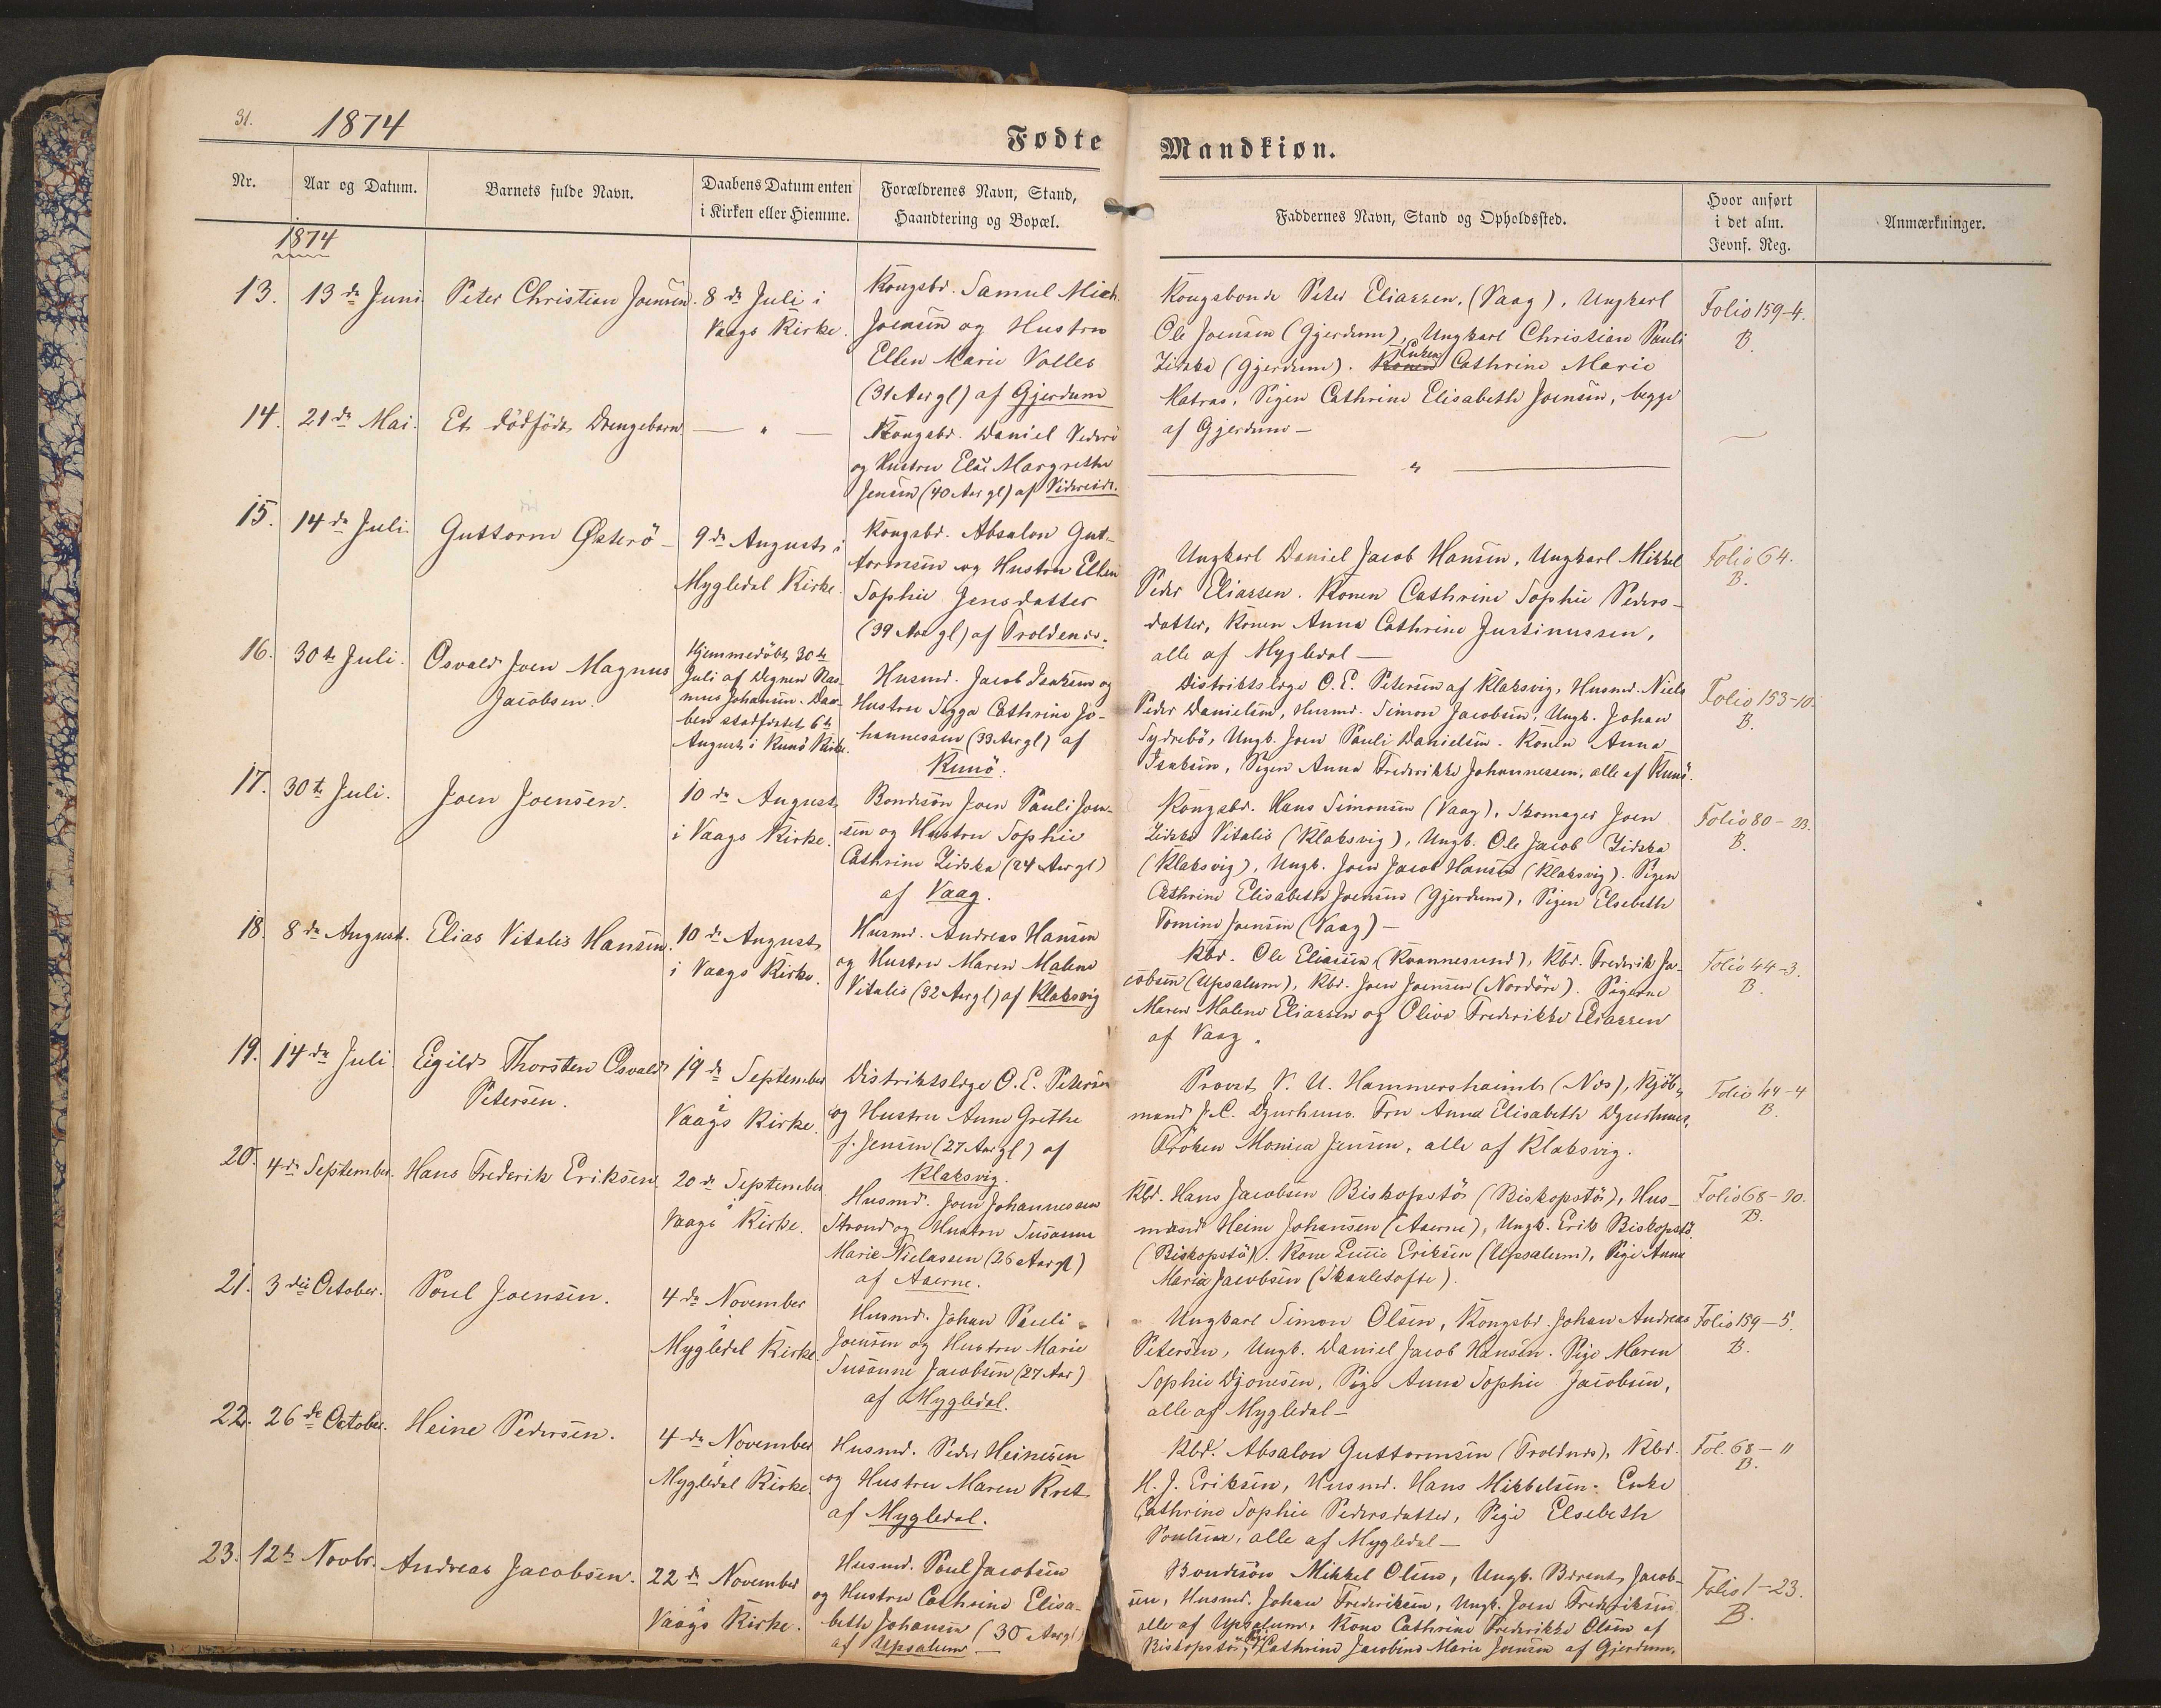 31.
1874
Fødte
Mandkiøn.
Nr.
Aar og Datum.
Barnets fulde Navn.
Daabens Datum enten
i Kirken eller Hiemme.
Forældrenes Navn, Stand,
Haandtering og Bopæl.
Faddernes Navn, Stand og Opholdssted.
Hvor anført
i det alm.
Jevnf. Reg.
Anmærkninger.
1874
13.
13de Juni
Peter Christian Joensen.
8de Juli i
Vaags Kirke.
Kongsbd. Samuel Mich.
Joensen og Hustru
Ellen Marie Volles
(31 Aar gl) af Gjerdum
Kongsbonde Peter Eliassen, (Vaag), Ungkarl
Ole Joensen (Gjerdum), Ungkarl Christian Pauli
Zidska (Gjerdum). Konen Enken Cathrine Marie
Matras, Pigen Cathrine Elisabeth Joensen, begge
af Gjerdum —
Folio 159-4.
B.
14.
21de Mai.
Et dödfödt Drengebarn
— " —
Kongsbd. Daniel Viderö
og Hustru Else Margrethe
Jensen (40 Aar gl) af Videreide.
— " —
15.
14de Juli.
Guttorm Østerö —
9de August i
Mygledal Kirke.
Kongsbd. Absalon Gut-
tormsen og Hustru Ellen
Sophie Jensdatter
(39 Aar gl) af Troldenæs.
Ungkarl Daniel Jacob Hansen, Ungkarl Mikkel
Peder Eliassen. Konen Cathrine Sophie Peders-
datter, Konen Anna Cathrine Justinussen,
alle af Mygledal —
Folio 64.
B.
16.
30te Juli.
Osvald Joen Magnus
Jacobsen.
Hjemmedöbt 30te
Juli af Degnen Ras-
mus Johansen. Daa-
ben stadfæstet 6te
August i Kunö Kirke.
Husmd. Jacob Isaksen og
Hustru Sigga Cathrine Jo-
hannessen (33 Aar gl) af
Kunö.
Distriktslæge O. E. Petersen af Klaksvig, Husmd. Niels
Peder Danielsen, Husmd. Simon Jacobsen, Ungk. Johan
Sydrebö, Ungk. Joen Pauli Danielsen. Konen Anna
Isaksen, Pigen Anna Frederikke Johannessen, alle af Kunö.
Folio 153-10.
B.
17.
30te Juli.
Joen Joensen.
10de August
i Vaags Kirke.
Bondesön Joen Pauli Joen-
sen og Hustru Sophie
Cathrine Zidska (24 Aar gl)
af Vaag.
Kongsbd. Hans Simonsen (Vaag), Skomager Joen
Zidska Vitalis (Klaksvig), Ungk. Ole Jacob Zidska
(Klaksvig), Ungk. Joen Jacob Hansen (Klaksvig). Pigen
Cathrine Elisabeth Joensen (Gjerdum), Pigen Elsebeth
Tomine Joensen (Vaag) —
Folio 80 - 23.
B.
18.
8de August.
Elias Vitalis Hansen.
10de August
i Vaags Kirke.
Husmd. Andreas Hansen
og Hustru Maren Malene
Vitalis (32 Aar gl) af Klaksvig
Kbd. Ole Eliassen (Kvannesund), Kbd. Frederik Ja-
cobsen (Upsalum), Kbd. Joen Joensen (Nordöre). Pigerne
Maren Malene Eliassen og Olive Frederikke Eliassen
af Vaag.
Folio 44-3.
B.
19.
14de Juli
Eigild Thorsten Osvald
Petersen.
19de September
i
Vaags Kirke.
Distriktslæge O. E. Petersen
og Hustru Anne Grethe
f. Jensen (27 Aar gl) af
Klaksvig.
Provst V. U. Hammershaimb (Næs), Kjöb-
mand J. C. Djurhuus. Fru Anna Elisabeth Djurhuus,
Fröken Monica Jensen, alle af Klaksvig.
Folio 44-4
B.
20.
4de September.
Hans Frederik Eriksen
20de September
i
Vaags Kirke.
Husmd. Joen Johannessen
Strond og Hustru Susanne
Marie Nielassen (26 Aar gl)
af Aaerne.
Kbd. Hans Jacobsen Biskopstö (Biskopstö), Hus-
mand Heine Johansen (Aaerne), Ungk. Erik Biskopstö
(Biskopstö). Kone Eriksen (Upsalum), Pige Anna
Maria Jacobsen (Skaaletofte).
Folio 68-20.
B.
21.
3die October.
Poul Joensen.
4de November
i
Mygledal Kirke.
Husmd. Johan Pauli
Joensen og Hustru Marie
Susanne Jacobsen (27 Aar)
af Mygledal.
Ungkarl Simon Olsen, Kongsbd. Johan Andreas
Petersen, Ungk. Daniel Jacob Hansen. Pige Maren
Sophie Djonesen, Pige Anna Sophie Jacobsen,
alle af Mygledal —
Folio 159-5.
B.
22.
26de October.
Heine Pedersen.
4de November
i
Mygledal Kirke.
Husmd. Peder Heinesen
og Hustru Maren Kret.
af Mygledal.
Kbd. Absalon Guttormsen (Troldnæs), Kbd.
H. J. Eriksen, Husmd. Hans Mikkelsen. Enke
Cathrine Sophie Pedersdatter, Pige Elsebeth
Poulsen, alle af Mygledal —
Fol. 68-11
B.
23.
12te Novbr.
Andreas Jacobsen.
22de November
i
Vaags Kirke.
Husmd. Poul Jacobsen
og Hustru Cathrine Elisa-
beth Johansen (30 Aar gl)
af Upsalum —
Bondesön Mikkel Olsen, Ungk. Berent Jacob-
sen, Husmd. Johan Frederiksen, Ungk. Joen Frederiksen
alle af Upsalum, Kone Cathrine Frederikke Olsen af
Biskopstö, Cathrine Jacobine Marie Joensen af Gjerdum.
Folio 1-23.
B.